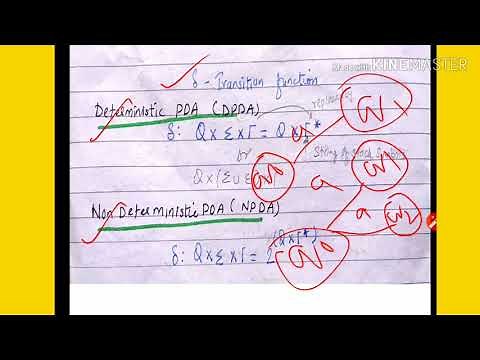 Made with KINEMASTER
δ - Transition function
Deterministic PDA (DPDA)
replaced by
δ: Q x Σ x Γ = Q x Γ*
or
String of stack Symbols
Q x {Σ ∪
q1
q0
a
q1
Non Deterministic PDA (NPDA)
a
q2
δ: Q x Σ x Γ = 2^(Q x Γ*)
q0